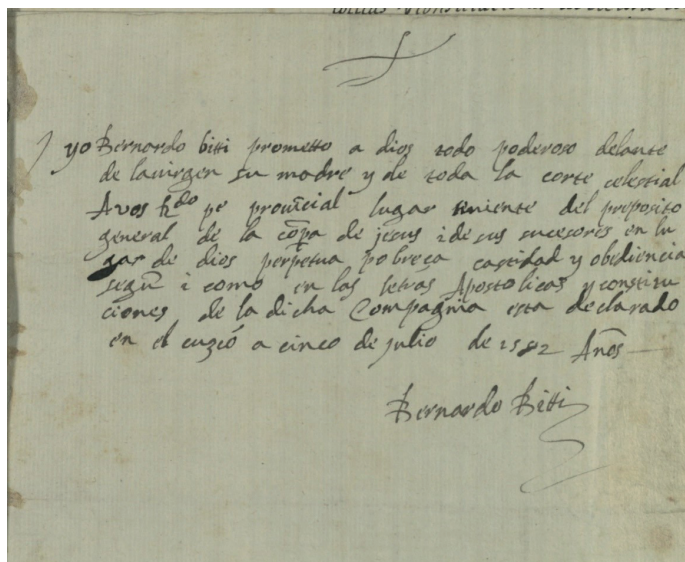 yo Bernardo bitti prometto a dios todo poderoso delante
de la virgen su madre y de toda la corte celestial
A vos R̃do pe provīcial lugar teniente del preposito
general de la cōpa de jesus i de sus sucesores en lu
gar de dios perpetua pobreça castidad y obediencia
segũ i como en las letras Apostolicas y constitu
ciones de la dicha Compagñia esta declarado
en el cuzco a cinco de julio de 1582 Años
Bernardo Bitti